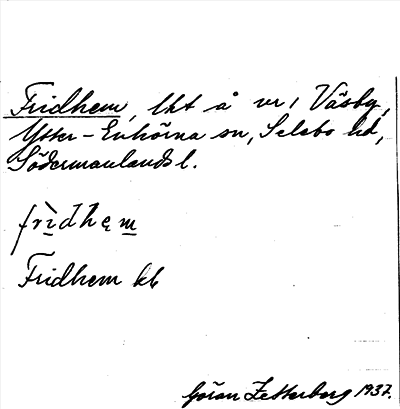 Fridhem, lht å vr 1 Väsby,
Ytter-Enhörna sn, Selebo hd,
Södermanlands l.
frìdhęm
Fridhem kb
Göran Zetterberg 1937.